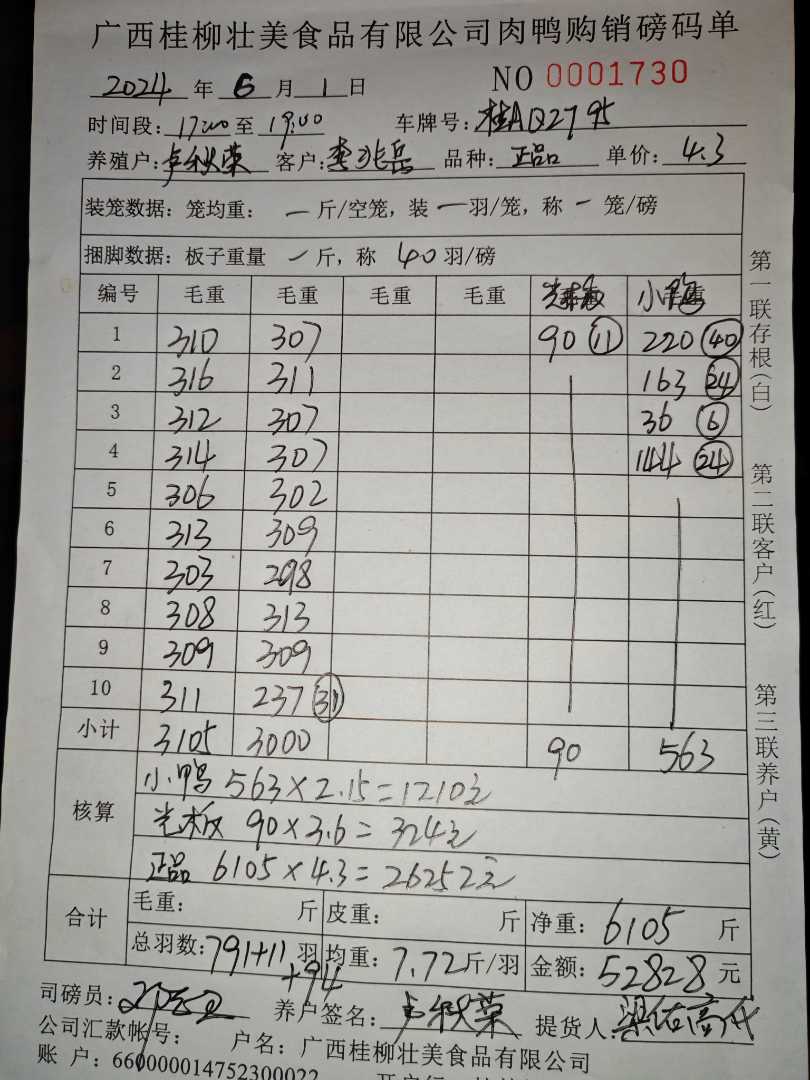 广西桂柳壮美食品有限公司肉鸭购销磅码单
2024 年 6 月 1 日 NO 0001730
时间段: 17:00 至 19:00 车牌号: 桂AQ2795
养殖户: 卢秋荣 客户: 李兆岳 品种: 正品 单价: 4.3
装笼数据: 笼均重: 一 斤/空笼, 装 一 羽/笼, 称 一 笼/磅
捆脚数据: 板子重量 一 斤, 称 40 羽/磅
编号 毛重 毛重 毛重 毛重 光板 小鸭
1 310 307 90 11 220 40
2 316 311 163 24
3 312 307 36 6
4 314 307 144 24
5 306 302
6 313 309
7 303 298
8 308 313
9 309 309
10 311 237 31
小计 3105 3000 90 563
核算
小鸭 563×2.15=1210元
光板 90×3.6=324元
正品 6105×4.3=26252元
合计
毛重: 斤 皮重: 斤 净重: 6105 斤
总羽数: 791+11 羽 均重: 7.72 斤/羽 金额: 52828 元
+94
司磅员: 养户签名: 卢秋荣 提货人:
公司汇款帐号: 户名: 广西桂柳壮美食品有限公司
账 户: 660000014752300022
第一联存根(白)
第二联客户(红)
第三联养户(黄)